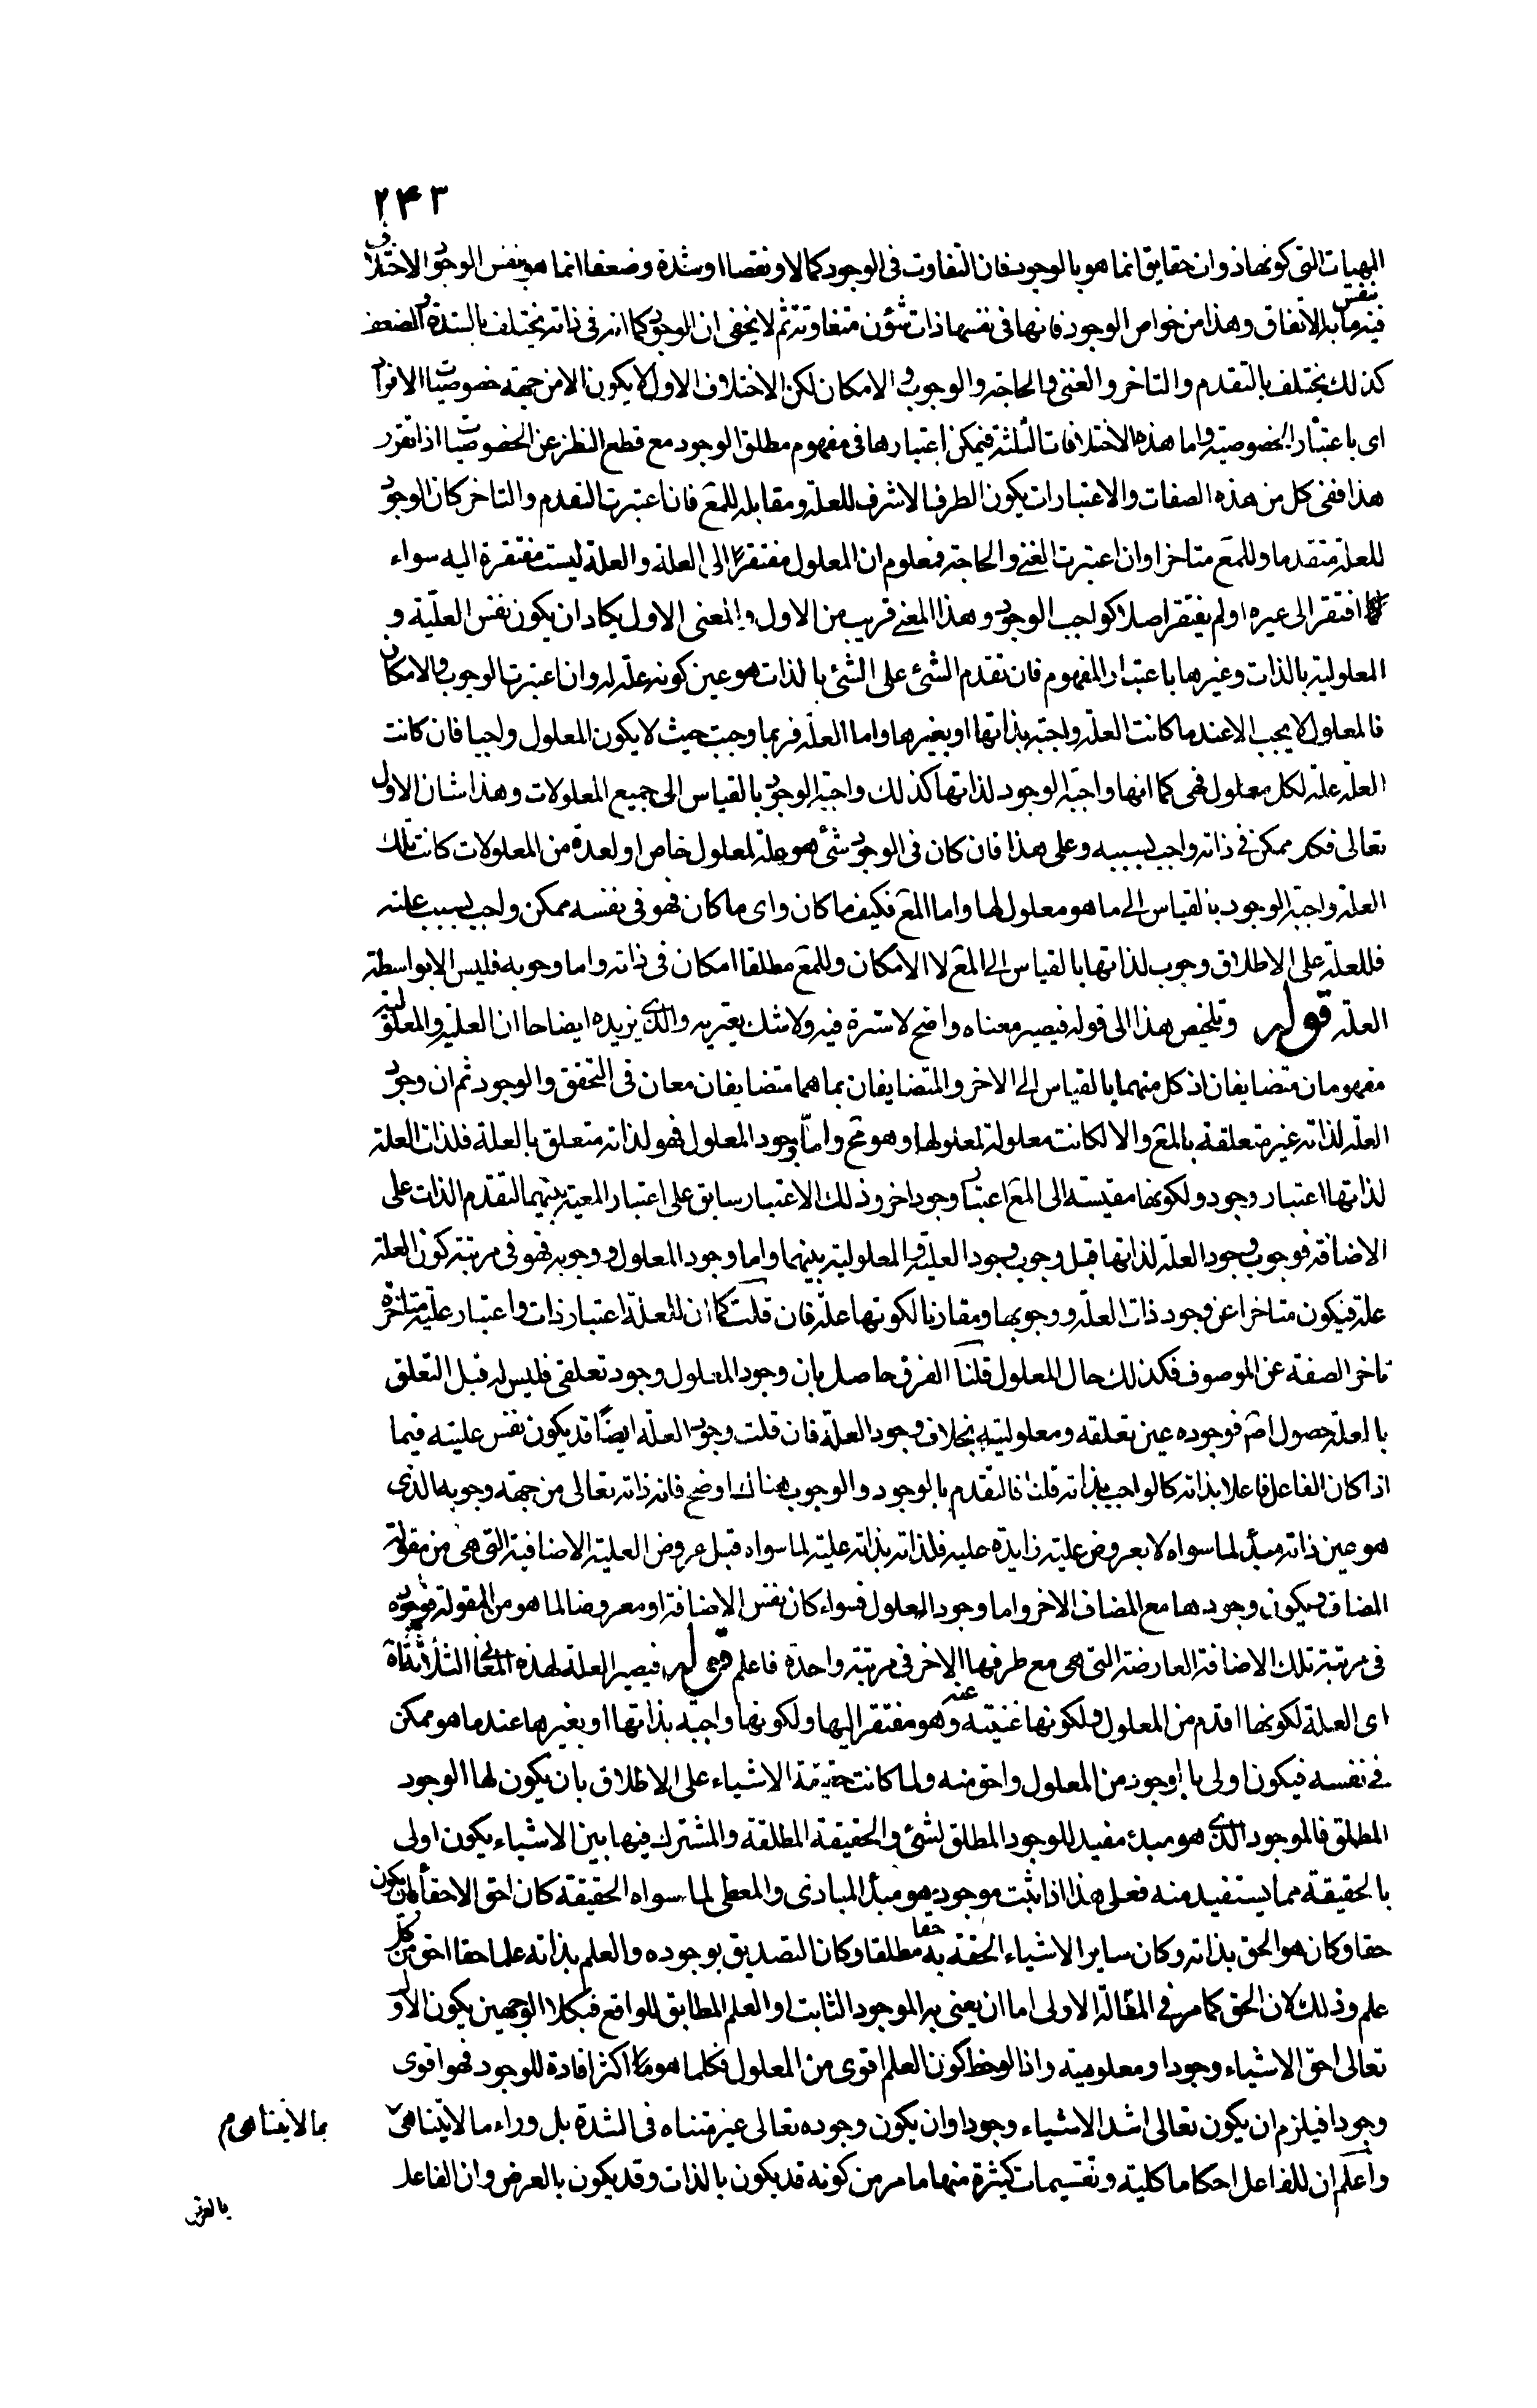 ۲۴۳
المهيات التى كونها ذوان حقايق انما هو بالوجود فان التفاوت فى الوجود كمالا و نقصا او شدة و ضعفا انما هو بنفس الوجود و الاختلاف
فيه بنفس ما به الاتفاق وهذا من خواص الوجود فانها فى نفسها ذات شؤن متفاوتة ثم لا يخفى ان الوجود كما انه فى ذاته يختلف بالشدة و الضعف
كذلك يختلف بالتقدم والتاخر و الغنى و الحاجة والوجوب و الامكان لكن الاختلاف الاول لا يكون الا من جهة خصوصيات الافراد
اى باعتبار الخصوصية واما هذه الاختلافات الثلثة فيمكن اعتبارها فى مفهوم مطلق الوجود مع قطع النظر عن الخصوصيات اذا تقرر
هذا ففى كل من هذه الصفات والاعتبارات يكون الطرف الاشرف للعلة و مقابله للمع فان اعتبرت التقدم والتاخر كان الوجود
للعلة متقدما وللمع متاخرا وان اعتبرت الغنى والحاجة فمعلوم ان المعلول مفتقر الى العلة و العلة ليست مفتقرة اليه سواء
افتقر الى غيره او لم يفتقر اصلا كواجب الوجود و هذا المعنى قريب من الاول و المعنى الاول يكاد ان يكون نفس العلّية و
المعلولية بالذات وغيرها باعتبار المفهوم فان تقدم الشئ على الشئ بالذات هو عين كونه علة له وان اعتبرت الوجوب والامكان
فالمعلول لا يجب الا عند ما كانت العلة واجبة بذاتها او بغيرها واما العلة فربما وجبت حيث لا يكون المعلول واجبا فان كانت
العلة علة لكل معلول فهى كما انها واجبة الوجود لذاتها كذلك واجبة الوجود بالقياس الى جميع المعلولات وهذا شان الاول
تعالى فكل ممكن فى ذاته واجب بسببه وعلى هذا فان كان فى الوجود شئ هو علة لمعلول خاص او لعدة من المعلولات كانت تلك
العلة واجبة الوجود بالقياس الى ما هو معلول لها واما المع فكيف ما كان واى ما كان فهو فى نفسه ممكن واجب بسبب علته
فللعلة على الاطلاق وجوب لذاتها بالقياس الى المع لا الامكان وللمع مطلقا امكان فى ذاته واما وجوبه فليس الا بواسطة
العلة قوله وتلخيص هذا الى قوله فيصير معناه واضح لا سترة فيه ولا شك يعتريه والذى يزيده ايضاحا ان العلية والمعلولية
مفهومان متضايفان اذ كل منهما بالقياس الى الاخر والمتضايفان بما هما متضايفان معان فى التحقق والوجود ثم ان وجود
العلة لذاته غير متعلقة بالمع والا لكانت معلولة لمعلولها وهو مح واما وجود المعلول فهو لذاته متعلق بالعلة فلذات العلة
لذاتها اعتبار وجود ولكونها مقيسة الى المع اعتبار وجود اخر وذلك الاعتبار سابق على اعتبار المعية بينهما لتقدم الذات على
الاضافة فوجوب وجود العلة لذاتها قبل وجوب وجود العلية والمعلولية بينهما واما وجود المعلول و وجوبه فهو فى مرتبة كون العلة
علة فيكون متاخرا عن وجود ذات العلة و وجوبها ومقارنا لكونها علة فان قلت كما ان للعلة اعتبار ذات واعتبار علية متاخرة
تاخر الصفة عن الموصوف فكذلك حال المعلول قلنا الفرق حاصل بان وجود المعلول وجود تعلقى فليس له قبل التعلق
بالعلة حصول اصم فوجوده عين تعلقه ومعلوليته بخلاف وجود العلة فان قلت وجود العلة ايضًا قد يكون نفس عليته فيما
اذا كان الفاعل فاعلا بذاته كالواجب بذاته قلنا فالتقدم بالوجود والوجوب هناك اوضح فانه ذاته تعالى من جهة وجوبه الذى
هو عين ذاته مبدأ لما سواه لا بعروض علية زايدة عليه فلذاته بذاته علية لما سواه قبل عروض العلية الاضافية التى هى من مقولة
المضاف ويكون وجودها مع المضاف الاخر واما وجود المعلول فسواء كان نفس الاضافة او معروضا لما هو من المقولة فوجوده
فى مرتبة تلك الاضافة العارضة التى هى مع طرفها الاخر فى مرتبة واحدة فاعلم قوله فيصير العلة لهذه المعانى الثلاثة
اى العلة لكونها اقدم من المعلول ولكونها غنيته عنه وهو مفتقر اليها ولكونها واجبة بذاتها او بغيرها عند ما هو ممكن
فى نفسه فيكون اولى بالوجود من المعلول واحق منه ولما كانت حقيقة الاشياء على الاطلاق بان يكون لها الوجود
المطلق فالموجود الذى هو مبدء مفيد للوجود المطلق لشئ والحقيقة المطلقة والمشترك فيها بين الاشياء يكون اولى
بالحقيقة مما يستفيد منه فعلى هذا اذا ثبت موجود هو مبدأ المبادى والمعطى لما سواه الحقيقة كان احق الاحقاء بان يكون
حقا وكان هو الحق بذاته وكان ساير الاشياء الحقة به حقا مطلقا وكان التصديق بوجوده والعلم بذاته علما حقا احق من كل
علم وذلك لان الحق كما مر فى المقالة الاولى اما ان يعنى به الموجود الثابت او العلم المطابق للواقع فبكلا الوجهين يكون الاول
تعالى احق الاشياء وجودا ومعلومية واذا لوحظ كون العلم اقوى من المعلول فكلما هو اكثر افادة للوجود فهو اقوى
وجودا فيلزم ان يكون تعالى اشد الاشياء وجودا وان يكون وجوده تعالى غير متناه فى الشدة بل وراء ما لا يتناهى
بما لا يتناهى م
واعلم ان للفاعل احكاما كلية وتقسيمات كثيرة منها ما مر من كونه قد يكون بالذات وقد يكون بالعرض وان الفاعل